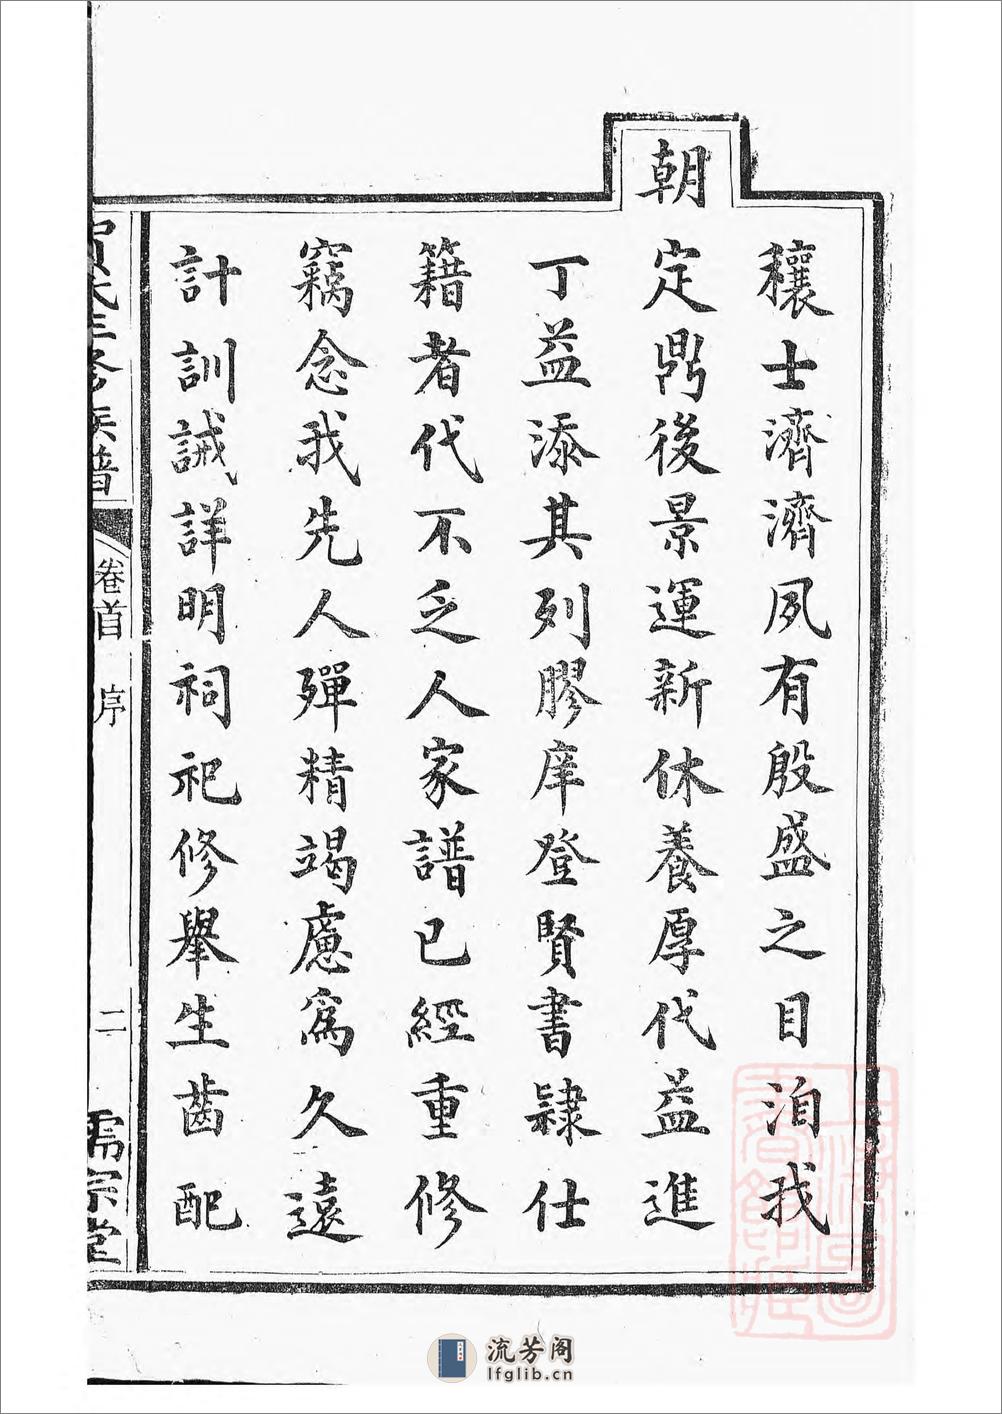 穰士濟濟夙有殷盛之目洎我
朝定鼎後景運新休養厚代益進
丁益添其列膠庠登賢書隷仕
籍者代不乏人家譜已經重修
竊念我先人殫精竭慮爲久遠
計訓誡詳明祠祀修舉生齒配
賀氏三修族譜
卷首 序
二
儒宗堂
流芳阁
lfglib.cn